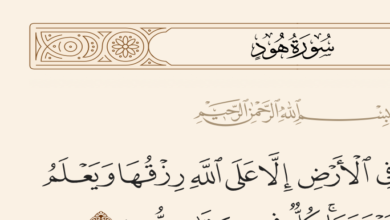 سُورَةُ هُودٍ
بِسْمِ اللَّهِ الرَّحْمَٰنِ الرَّحِيمِ
فِي الْأَرْضِ إِلَّا عَلَى اللَّهِ رِزْقُهَا وَيَعْلَمُ